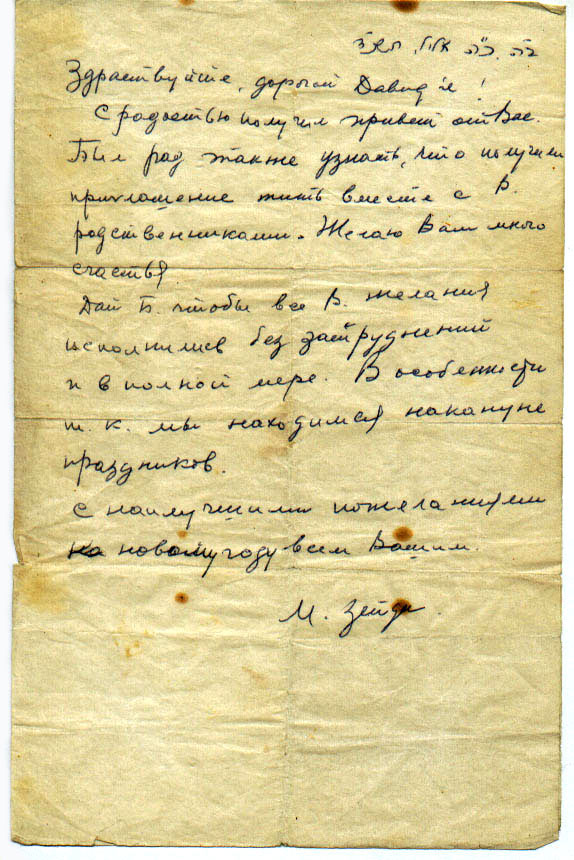 ב"ה. כ"ה אלול,
Здраствуйте, дорогой Давид'е!
С радостью получил привет от Вас.
Был рад также узнать, что получили
приглашение жить вместе с В.
родственниками. Желаю Вам много
счастья
Дай Б. чтобы все В. желания
исполнились без затруднений
и в полной мере. В особенности
т. к. мы находимся накануне
праздников.
С наилучшими пожеланиями
к новому году всем Вашим.
М. Зейди